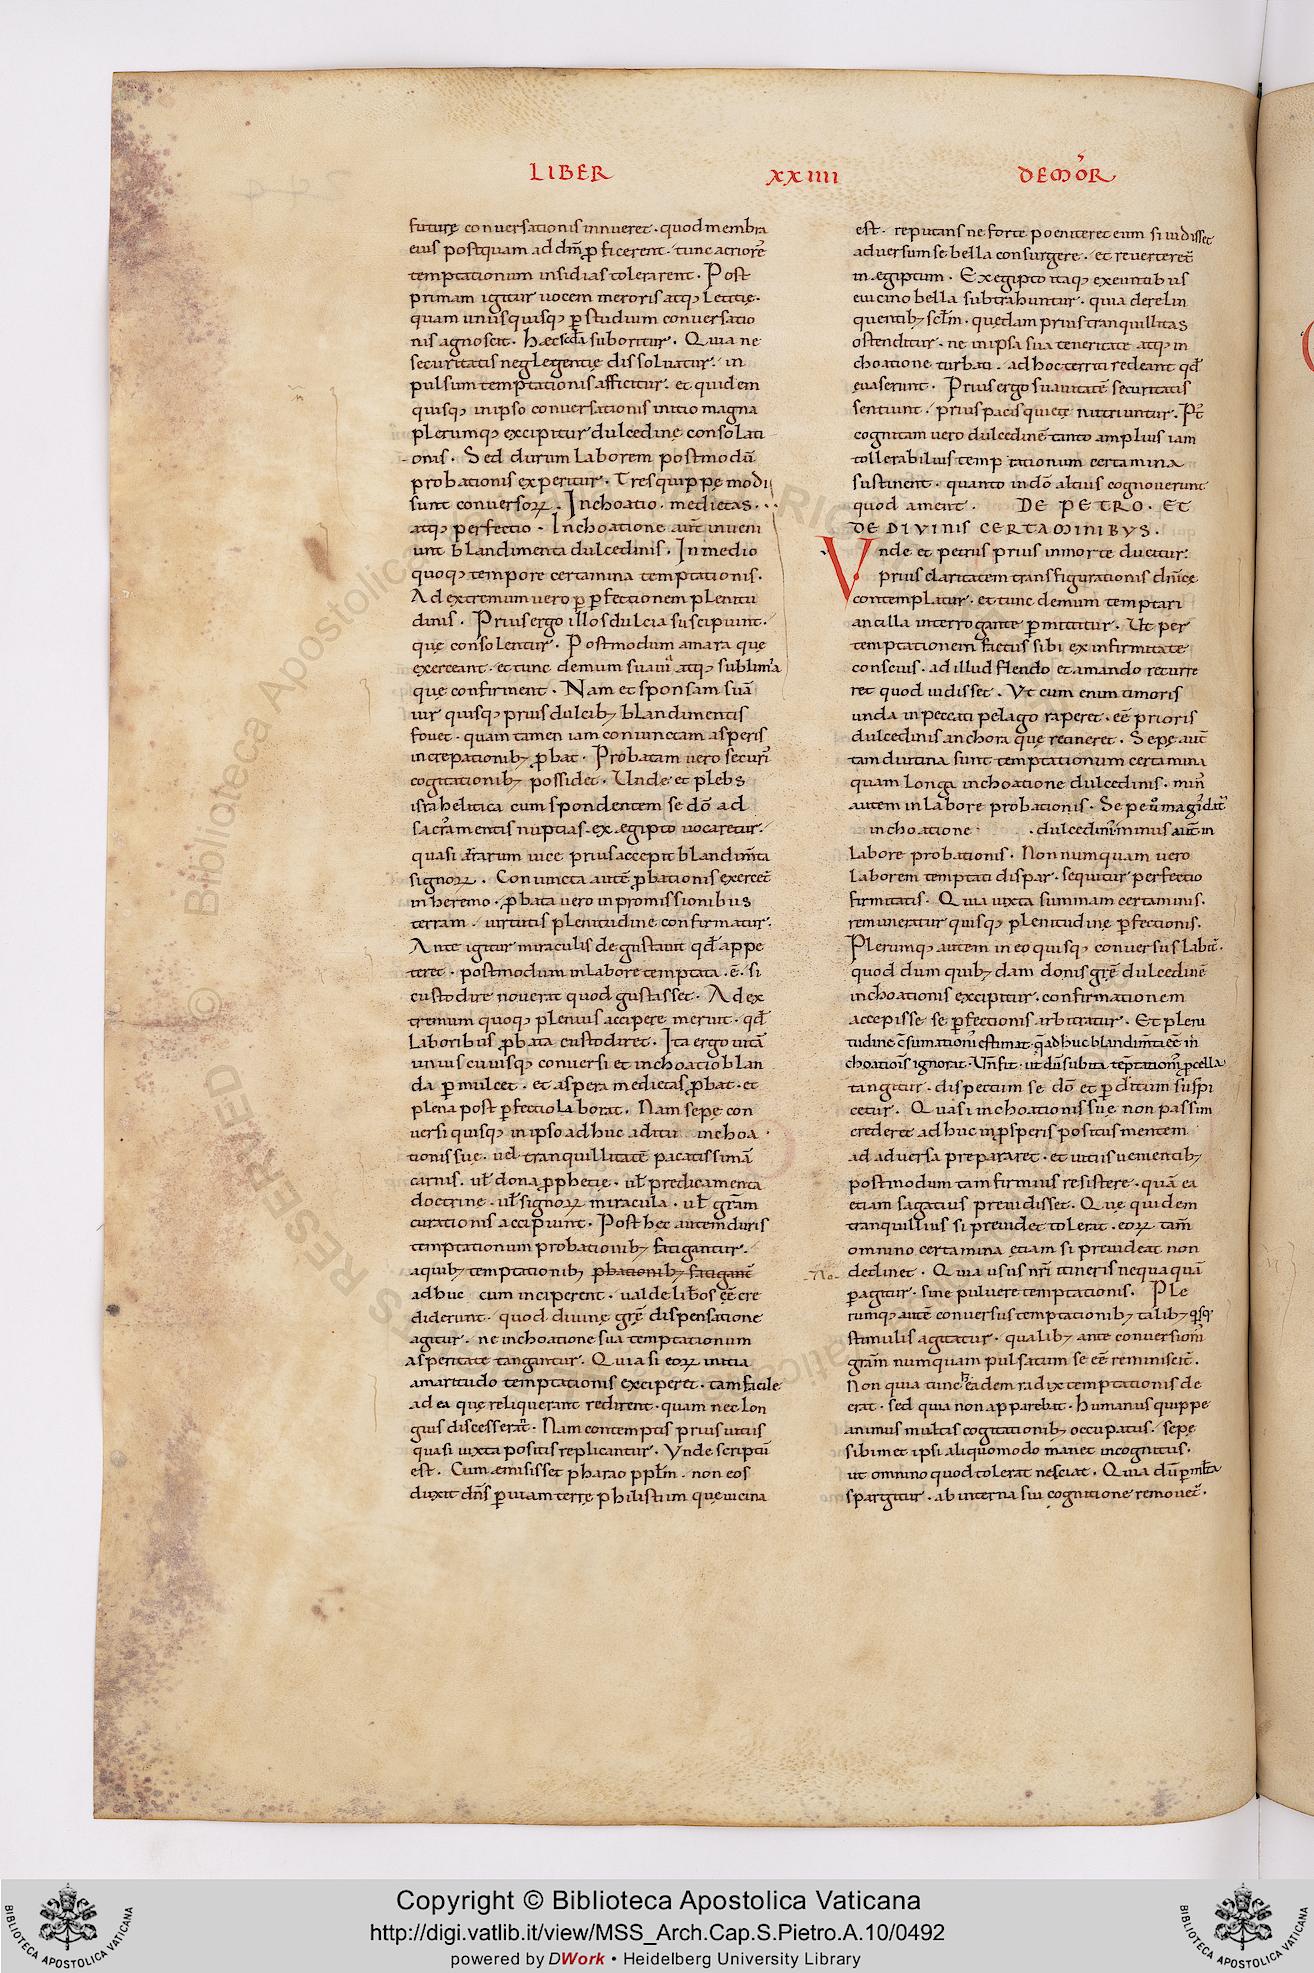 LIBER XXIIII DE MOR̄
futurę conuersationis innueret · quod membra
eius postquam ad dm̄ ꝓficerent · tunc acriorē
temptationum insidias tolerarent · Post
primam igitur uocem meroris atq; letitię ·
quam unusquisq; ꝑ studium conuersatio
nis agnoscit · hæc scd̄a suboritur · Quia ne
securitatis neglegentię dissoluatur · in
pulsum temptationis afficitur · et quidem
quisq; in ipso conuersationis initio magna
plerumq; excipitur dulcedinę consolati
onis · Sed durum laborem postmodū
probationis experitur · Tres quippę modi
sunt conuersoꝝ · Inchoatio · medietas ·
atq; perfectio · Inchoatione aut̄ inueni
unt blandimenta dulcedinis · In medio
quoq; tempore certamina temptationis ·
Ad extremum uero ꝑ ꝑfectionem plenitu
dinis · Prius ergo illos dulcia suscipiunt ·
quę consolentur · Postmodum amara quę
exerceant · et tunc demum suauia atq; sublimia
quę confirment · Nam et sponsam suā
uir quisq; prius dulcib; blandimentis
fouet · quam tamen iam coniunctam asperis
increpationib; ꝓbat · Probatam uero securis
cogitationib; possidet · Unde et plebs
israhelitica cum spondentem se dō ad
sacramentis nuptias · ex ęgipto uocaretur ·
quasi arrarum uice prius accepit blandim̄ta
signoꝝ · Coniuncta autē ꝓbationis exercet̄
in heremo · ꝓbata uero in promissionibus
terram · uirtutis plenitudine confirmatur ·
Ante igitur miraculis degustauit qd̄ appe
teret · postmodum in labore temptata · ē · si
custodire nouerat quod gustasset · Ad ex
tremum quoq; plenius accipere meruit · qd̄
laboribus ꝓbata custodiret · Ita ergo uitā
unius cuiusq; conuersi et inchoatio blan
da ꝑmulcet · et aspera medietas ꝓbat · et
plena post ꝑfectio laborat · Nam sepę con
uersi quisq; in ipso adhuc aditu inchoa
tionis suę · uel tranquillitatē pacatissimā
carnis · ul̄ dona ꝓphetię · ul̄ predicamenta
doctrinę · ul̄ signoꝝ miracula · ul̄ gram̄
curationis accipiunt · Post hec autem duris
temptationum probationib; fatigantur ·
aquib; temptationib; ꝓbationib; fatigant̄
adhuc cum inciperent · ualde lib̄os ēē cre
diderunt · quod diuinę grę̄ dispensatione
agitur · ne inchoatione sua temptationum
asperitate tangantur · Quia si eoꝝ initia
amaritudo temptationis exciperet · tam facile
ad ea quę reliquerant redirent · quam nec lon
gius discesserant · Nam contemptis prius uitiis
quasi iuxta positis replicantur · Vnde scriptū
est · Cum emisisset pharao ppl̄m · non eos
duxit dn̄s ꝑ uiam terrę philistium quę uicina
est · reputans ne forte poeniteret eum si uidisset
aduersum se bella consurgere · et reuerteret̄
in ęgiptum · Ex egipto itaq; exeuntibus
euicino bella subtrahuntur · quia derelin
quentib; scl̄m · quędam prius tranquillitas
ostenditur · ne in ipsa sua teneritate atq; in
choatione turbati · ad hoc territi redeant qd̄
euaserunt · Prius ergo suauitatē securitatis
sentiunt · prius pacis quietę nutriuntur · Pt̄
cognitam uero dulcedinē tanto amplius iam
tollerabilius temptationum certamina
sustinent · quanto in dō altius cognouerunt
quod ament · DE PETRO · ET
DE DIVINIS CERTAMINIBVS ·
Vnde et petrus prius in morte ducitur ·
prius claritatem transfigurationis dn̄icę
contemplatur · et tunc demum temptari
ancilla interrogante ꝑmittitur · Ut per
temptationem factus sibi ex infirmitate
conscius · ad illud flendo et amando recurre
ret quod uidisset · Vt cum enim timoris
unda in peccati pelago raperet · ēē prioris
dulcedinis anchora quę retineret · Sepę aut̄
tam diutina sunt temptationum certamina
quam longa inchoatione dulcedinis · min̄
autem in labore probationis · Sepe
inchoatione · dulcedinis minus aut̄ in
labore probationis · Non numquam uero
laborem temptati dispar · sequitur perfectio
firmitatis · Quia iuxta summam certaminis ·
remuneratur quisq; plenitudinę ꝑfectionis ·
Plerumq; autem in eo quisq; conuersus labit̄ ·
quod dum quib;dam donis grę̄ dulcedinē
inchoationis excipitur · confirmationem
accepisse se ꝑfectionis arbitratur · Et pleni
tudinē estimat
choationis ignorat · Vn̄ fit ut dū subita ꝓcella
tangitur · dispectum se dō et ꝑditum suspi
cetur · Quasi inchoationis suę non passim
crederet adhuc in ꝓsperis positus mentem
ad aduersa prepararet · et uitiis uenientib;
postmodum tam firmius resistere · quā ea
etiam sagacius preuidisset · Quę quidem
tranquillius si preuidet tolerat · eoꝝ tam̄
omnino certamina etiam si preuideat non
declinet · Quia usus nr̄i itineris nequaquā
ꝑagitur · sine puluere temptationis · Ple
rumq; autē conuersus temptationib; talib; qsq
stimulis agitatur · qualib; ante conuersionis
gram̄ numquam pulsatum se ēē reminiscit̄ ·
Non quia tunc h̄ eadem radix temptationis de
erat · sed quia non apparebat · humanus quippe
animus multis cogitationib; occupatus · sepę
sibimet ipsi aliquomodo manet incognitus ·
ut omnino quod tolerat nesciat · Quia dū ꝑ ml̄ta
spargitur · ab interna sui cognitione remouet̄ ·
No
Copyright © Biblioteca Apostolica Vaticana
http://digi.vatlib.it/view/MSS_Arch.Cap.S.Pietro.A.10/0492
powered by DWork • Heidelberg University Library
BIBLIOTECA APOSTOLICA VATICANA
BIBLIOTECA APOSTOLICA VATICANA